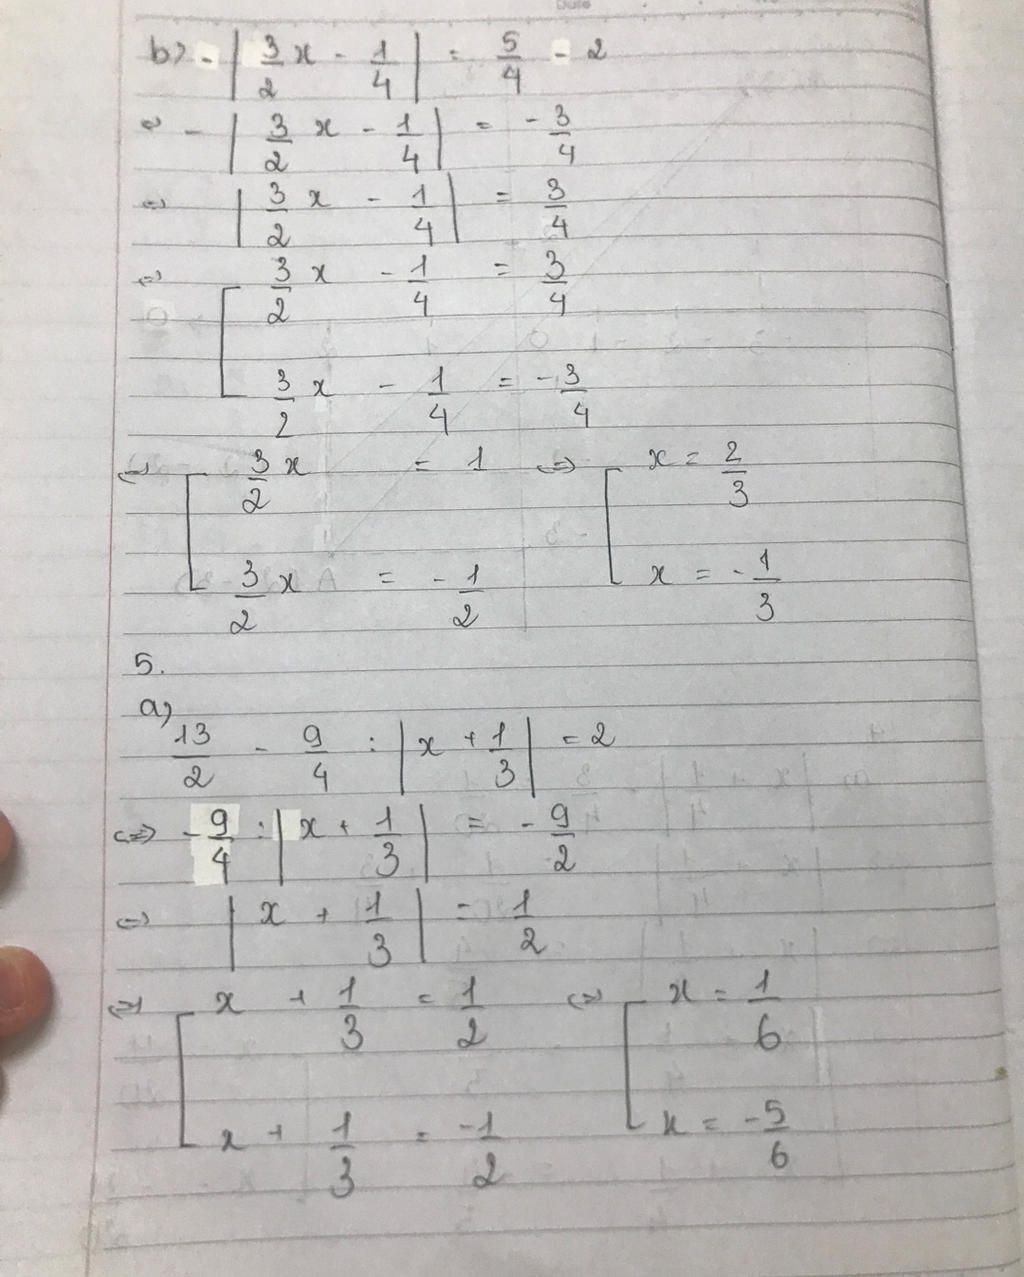 b) - | 3/2 x - 1/4 | = 5/4 - 2
⇔ - | 3/2 x - 1/4 | = - 3/4
⇔ | 3/2 x - 1/4 | = 3/4
⇔ [ 3/2 x - 1/4 = 3/4
3/2 x - 1/4 = - 3/4
⇔ [ 3/2 x = 1 ⇔ [ x = 2/3
3/2 x = - 1/2 x = - 1/3
5.
a)
13/2 - 9/4 : | x + 1/3 | = 2
⇔ - 9/4 : | x + 1/3 | = - 9/2
⇔ | x + 1/3 | = 1/2
⇔ [ x + 1/3 = 1/2 ⇔ [ x = 1/6
x + 1/3 = -1/2 x = -5/6